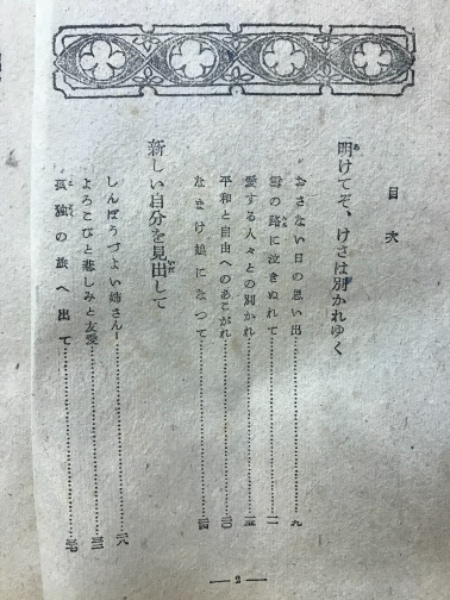 目次
明けてぞ、けさは別かれゆく
おさない日の思い出……九
雪の路に泣きぬれて……一一
愛する人々との別かれ……一五
平和と自由へのあこがれ……二〇
なまけ娘になって……二四
新しい自分を見出して
しんぼうづよい姉さん……二八
よろこびと悲しみと友愛……三三
孤独の旅へ出て……三七
—2—